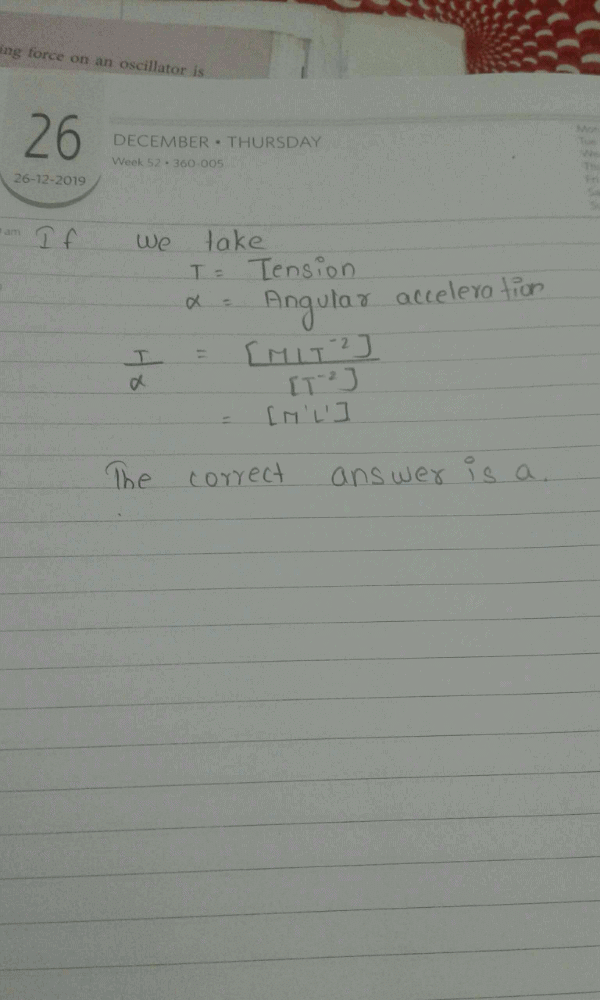 ing force on an oscillator is
26
DECEMBER • THURSDAY
Week 52 • 360-005
26-12-2019
am
If we take
T = Tension
α = Angular acceleration
T/α = [MLT⁻²]/[T⁻²]
= [M'L']
The correct answer is a.